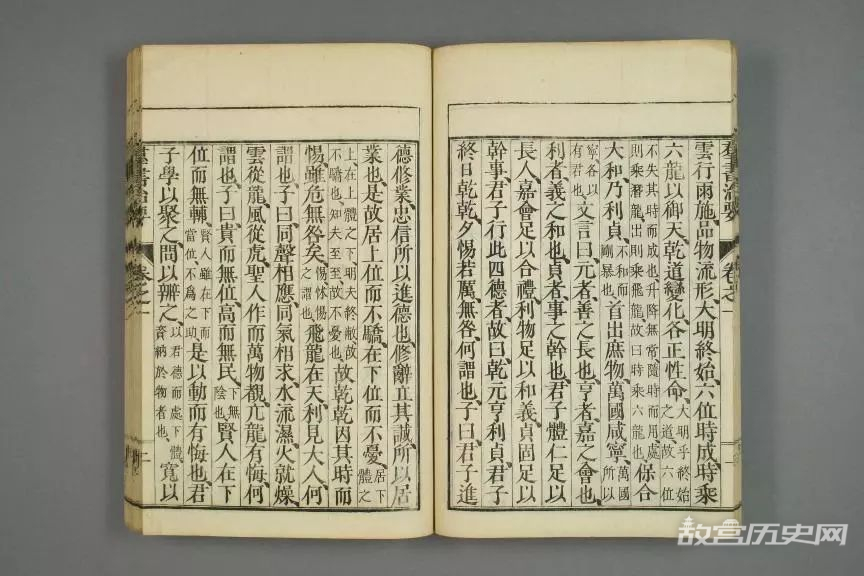 雲行雨施、品物流形、大明終始、六位時成、時乘
六龍以御天、乾道變化、各正性命、大明乎終始之道故六位
不失其時而成也升降無常隨時而用處則乘潛龍出則乘飛龍故曰時乘六龍也保合
大和、乃利貞、不和而剛暴也、首出庶物、萬國咸寧、萬國所以
寧各以有君也、文言曰、元者善之長也、亨者嘉之會也、
利者義之和也、貞者事之幹也、君子體仁足以
長人、嘉會足以合禮、利物足以和義、貞固足以
幹事、君子行此四德者、故曰、乾元亨利貞、君子
終日乾乾、夕惕若厲、無咎、何謂也、子曰、君子進
德修業、忠信所以進德也、修辭立其誠、所以居
業也、是故居上位而不驕、在下位而不憂、居下體之
上在上體之下明夫終敝故不驕也、知夫至至故不憂也故乾乾因其時而
惕、雖危無咎矣、惕怵惕之謂也、飛龍在天、利見大人、何
謂也、子曰、同聲相應、同氣相求、水流濕、火就燥、
雲從龍、風從虎、聖人作而萬物覩、亢龍有悔、何
謂也、子曰、貴而無位、高而無民、下無陰也、賢人在下
位而無輔、賢人雖在下而當位不爲之助、是以動而有悔也、君
子學以聚之、問以辨之、以君德而處下體資納於物者也、寬以
群書治要 卷之一
群書治要 卷之一 二
故宫历史网